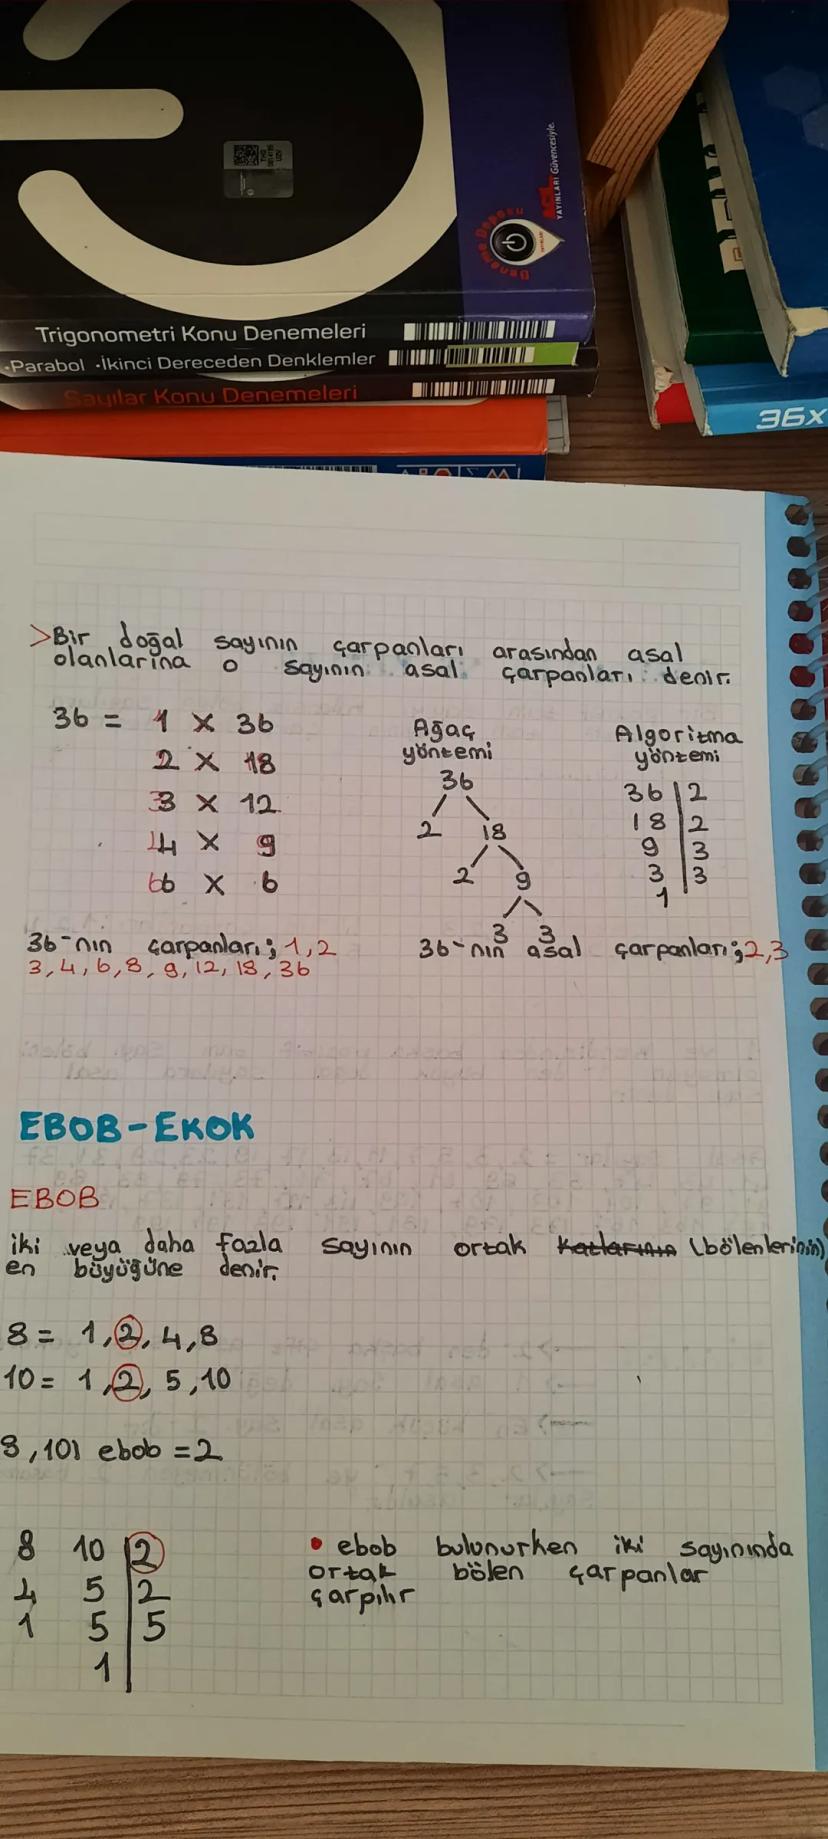 Deneme Deposu
AÇIL
YAYINLARI Güvencesiyle.
Trigonometri Konu Denemeleri
•Parabol •İkinci Dereceden Denklemler
Sayılar Konu Denemeleri
36X
>Bir doğal sayının çarpanları arasından asal
olanlarına o sayının asal çarpanları denir.
36 = 1 X 36
2 X 18
3 X 12
4 X 9
6 X 6
36-nın çarpanları; 1,2
3,4,6,8,9,12,18,36
Ağaç
yöntemi
36
2 18
2 9
3 3
Algoritma
yöntemi
36 | 2
18 | 2
9 | 3
3 | 3
1
36-nın asal çarpanları; 2,3
EBOB-EKOK
EBOB
iki veya daha fazla sayının ortak katlarının (bölenlerinin)
en büyüğüne denir.
8 = 1,2,4,8
10 = 1,2,5,10
8,10) ebob = 2
8 10 | 2
4 5 | 2
1 5 | 5
1
• ebob bulunurken iki sayınında
ortak bölen çarpanlar
çarpılır